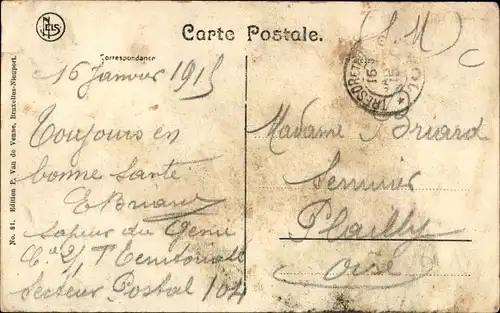 NELS
Carte Postale.
(S. M)
Correspondance
16 Janvier 1915
TRESOR ET
16
15
Toujours en
bonne santé
EBriard
Sapeur du Génie
Cie 2/T Territoriale
Secteur Postal 104
Madame Briard
Plailly
Oise
No. 81. Edition P. Van de Venne, Bruxelles-Nieuport.